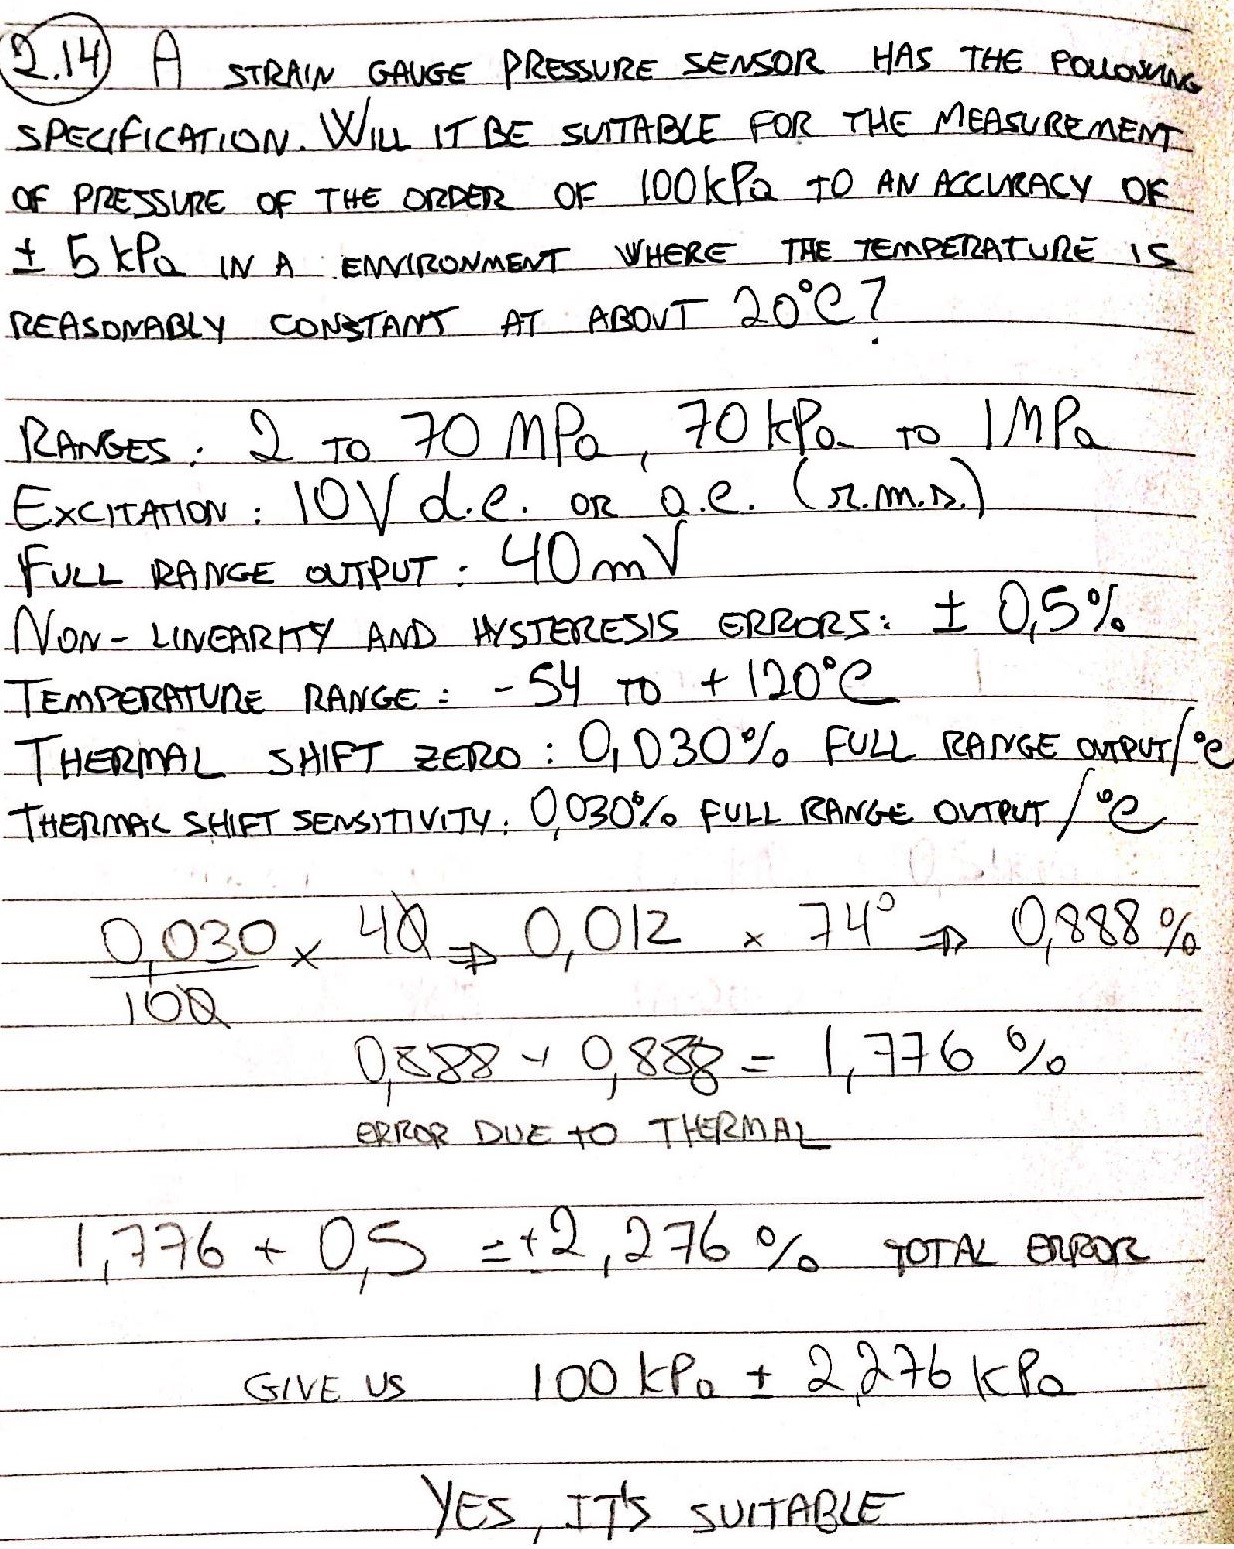 2.14 A STRAIN GAUGE PRESSURE SENSOR HAS THE FOLLOWING
SPECIFICATION. WILL IT BE SUITABLE FOR THE MEASUREMENT
OF PRESSURE OF THE ORDER OF 100kPa TO AN ACCURACY OF
± 5 kPa IN A ENVIRONMENT WHERE THE TEMPERATURE IS
REASONABLY CONSTANT AT ABOUT 20°C?
RANGES: 2 TO 70 MPa, 70 kPa TO 1MPa
EXCITATION: 10V d.c. OR a.c. (r.m.s.)
FULL RANGE OUTPUT: 40mV
NON-LINEARITY AND HYSTERESIS ERRORS: ± 0,5%
TEMPERATURE RANGE: -54 TO +120°C
THERMAL SHIFT ZERO: 0,030% FULL RANGE OUTPUT/°C
THERMAL SHIFT SENSITIVITY: 0,030% FULL RANGE OUTPUT/°C
0,030/100 × 40 ⇒ 0,012 × 74° ⇒ 0,888%
0,888 + 0,888 = 1,776 %
ERROR DUE TO THERMAL
1,776 + 0,5 = ±2,276 % TOTAL ERROR
GIVE US 100 kPa ± 2,276 kPa
YES, IT'S SUITABLE